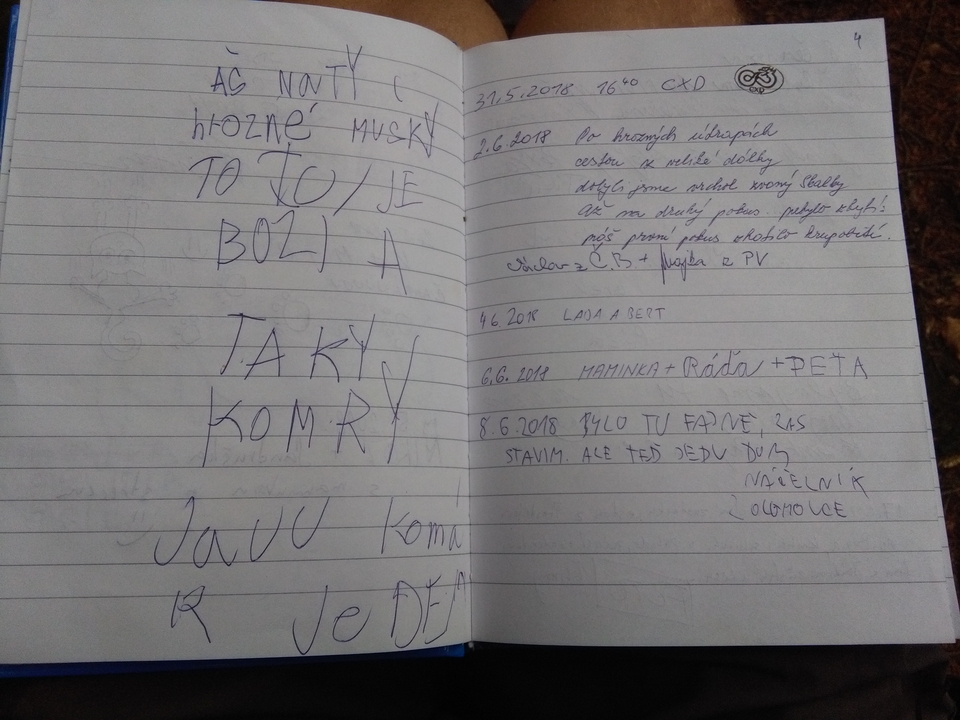 AŠ NATY I
hrozné MUSKY
TO TO, JE
BOŽI A
TAKY
KOMRY
JaUU komá
R Je DĚJ
4
31.5.2018 16⁴⁰ CXD
CXD
2.6.2018 Po hrozných útrapách
cestou z veliké dálky
dobyli jsme vrchol zvaný Skalky
Až na druhý pokus nebylo zbytí:
náš první pokus zhatilo krupobití.
Václav z Č.B + Majka z PV
4.6.2018 LADA A BERT
6.6.2018 MAMINKA + Ráďa + PEŤA
8.6.2018 BYLO TU FAJNĚ, ZAS
STAVIM. ALE TEĎ JEDU DUM
NÁČELNÍK
Z OLOMOUCE